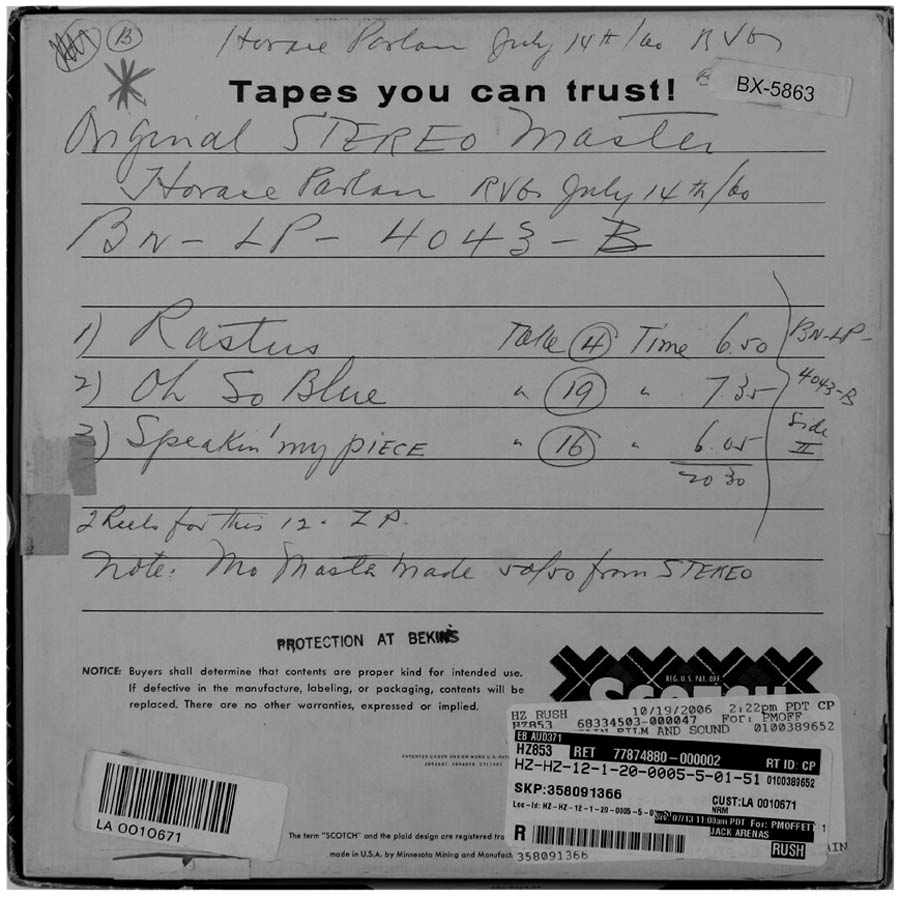 B Horace Parlan July 14th/60 RVG
Tapes you can trust!
BX-5863
Original STEREO Master
Horace Parlan RVG July 14th/60
BN-LP-4043-B
1) Rastus Take 4 Time 6.50
2) Oh So Blue " 19 " 7.35
3) Speakin' my PIECE " 16 " 6.05
20 30
BN-LP-
4043-B
Side
II
2 Reels for this 12" LP.
Note: Mo Master made 50/50 from STEREO
PROTECTION AT BEKINS
NOTICE: Buyers shall determine that contents are proper kind for intended use.
If defective in the manufacture, labeling, or packaging, contents will be
replaced. There are no other warranties, expressed or implied.
REG. U.S. PAT. OFF.
SCOTCH
HZ RUSH 10/19/2006 2:22pm PDT CP
HZ853 68334503-000047 For: PMOFF
FILM AND SOUND 0100389652
EB AUD371
HZ853 RET 77874880-000002 RT ID: CP
HZ-HZ-12-1-20-0005-5-01-51 0100389652
SKP:358091366
CUST:LA 0010671
NRM
Loc-id: HZ-HZ-12-1-20-0005-5-0
07/13 11:00am PDT For: PMOFFETT
JACK ARENAS
R RUSH
358091366
LA 0010671
The term "SCOTCH" and the plaid design are registered tra
made in U.S.A. by Minnesota Mining and Manufact